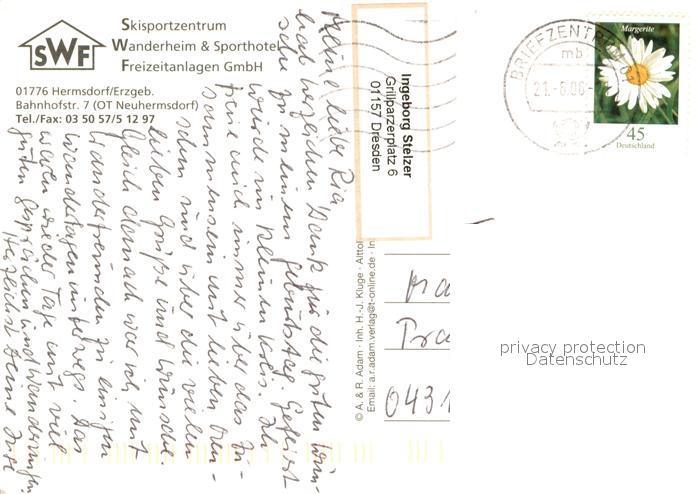 SWF
Skisportzentrum
Wanderheim & Sporthotel
Freizeitanlagen GmbH
01776 Hermsdorf/Erzgeb.
Bahnhofstr. 7 (OT Neuhermsdorf)
Tel./Fax: 03 50 57/5 12 97
Meine liebe Ria
hab herzlichen Dank für die guten Wün-
sche zu meinem Geburtstag. Gefeiert
wurde im kleinen Kreis. Ich
freue mich immer über das
Zusammensein mit lieben
schen und über die vielen
lieben Grüße und Wünsche.
Gleich danach war ich mit
Wanderfreunden zu einigen
Wandertagen unterwegs. Das
waren wieder Tage mit viel
guten Gesprächen und Wanderungen
Herzlichst Deine Inge
Ingeborg Stelzer
Grillparzerplatz 6
01157 Dresden
© A. & R. Adam · Inh. H.-J. Kluge · Alttol
Email: a.r.adam.verlag@t-online.de · In
BRIEFZENTRUM
mb
21.-6.06
Margerite
45
Deutschland
Tra
0431
privacy protection
Datenschutz